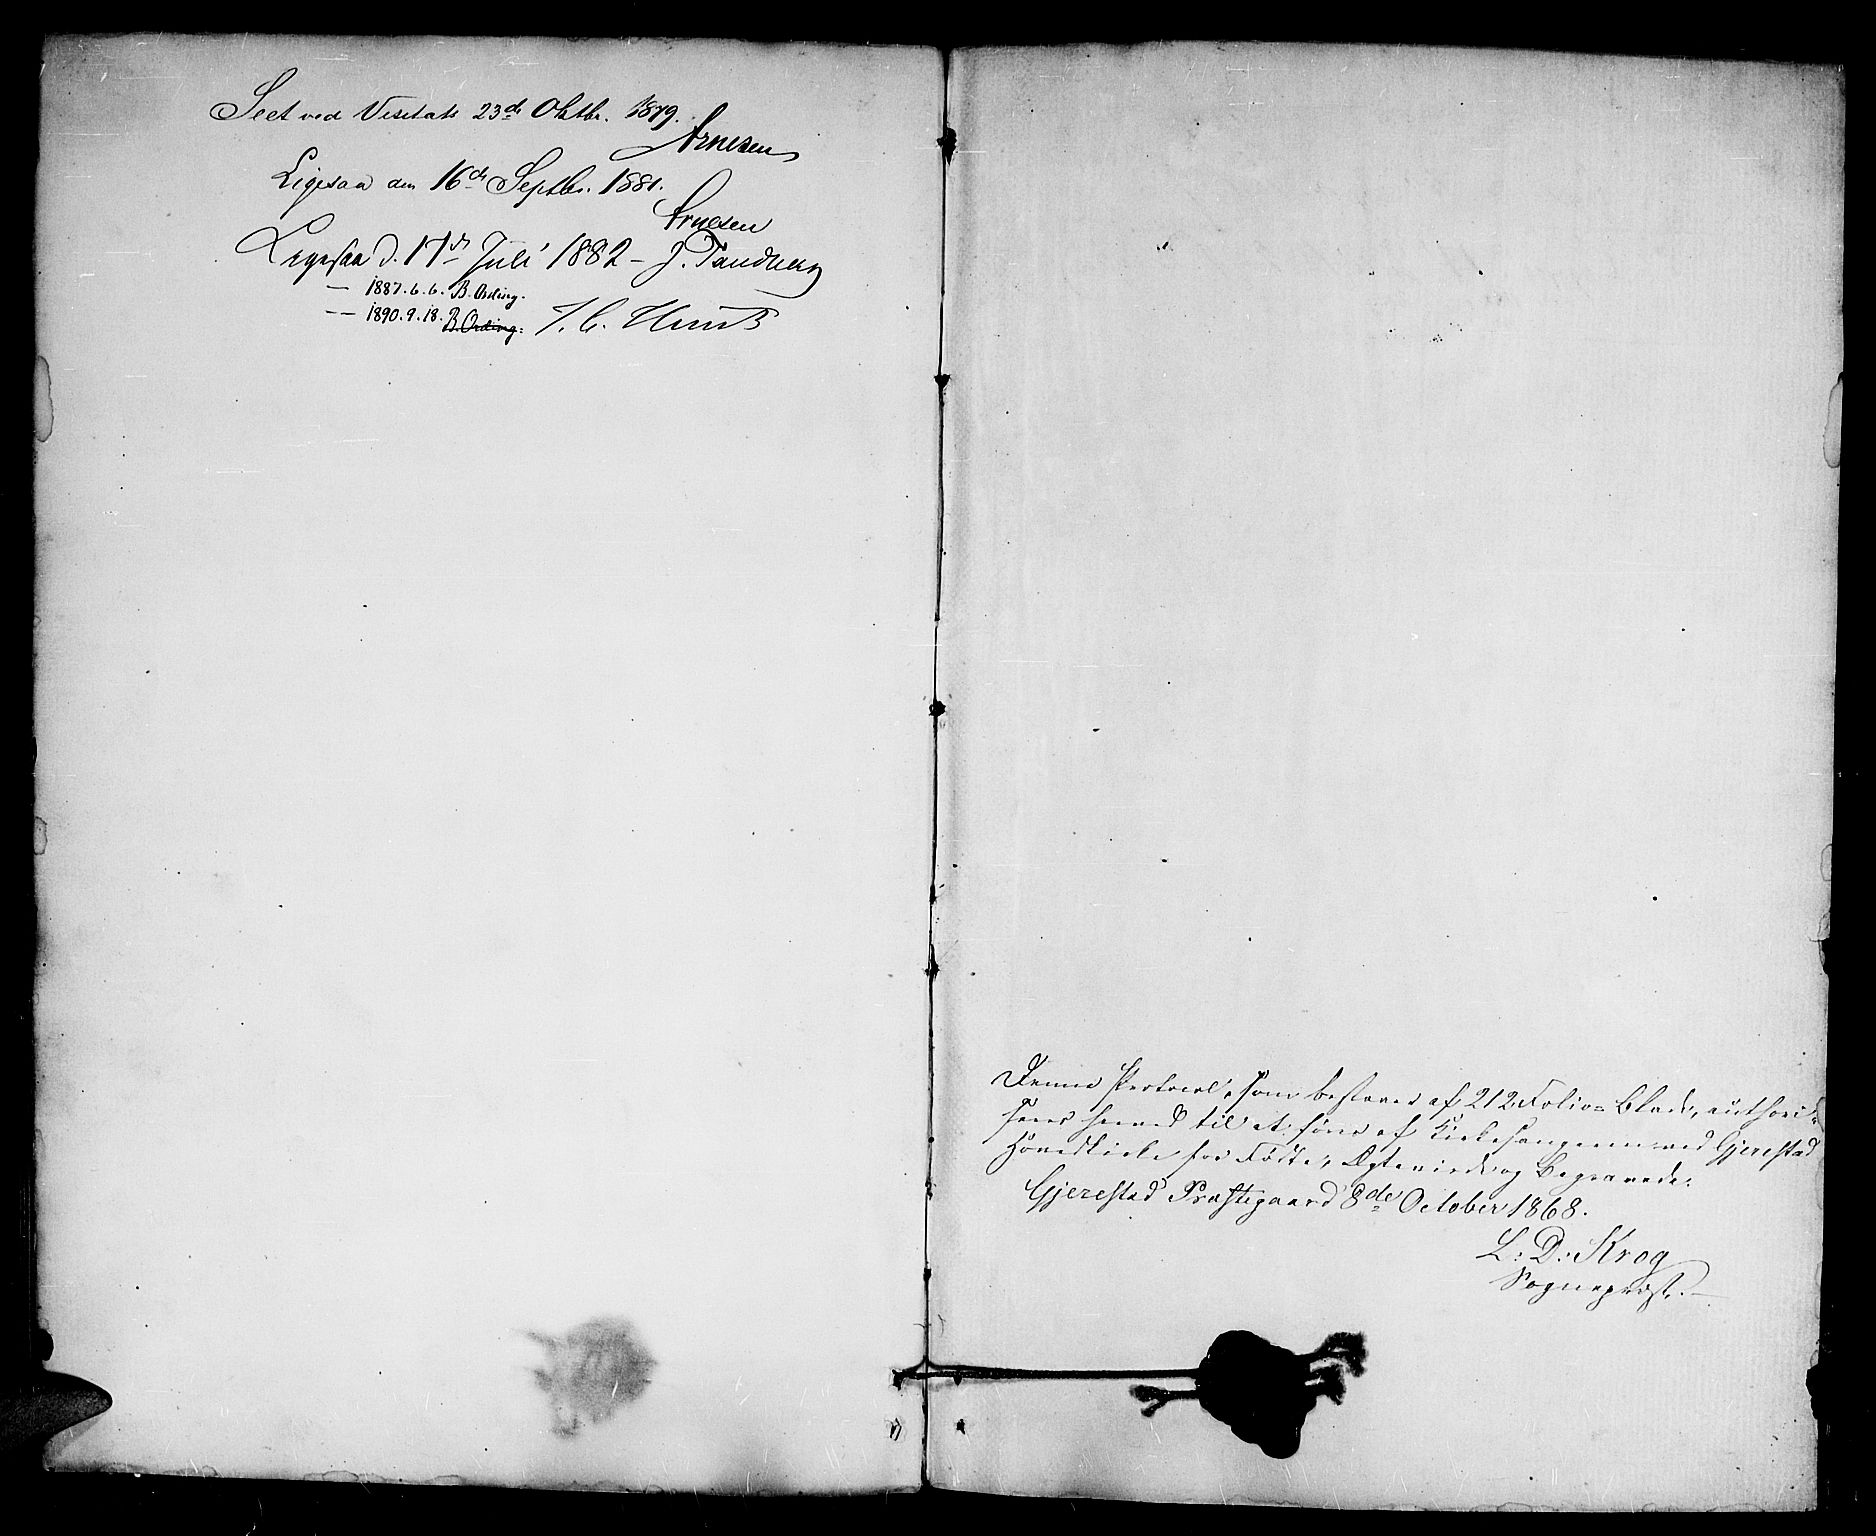 Seet ved Visitats 23de Oktbr. 1879.
Arnesen
Ligesaa den 16de Septbr. 1881.
Arnesen
Ligesaa d. 17de Juli 1882 – J. Tandberg
— 1887.6.6. B. Ording.
—— 1890.9.18. B. Ording.
Denne Protocol, som bestaaer af 212 Folio- Blade, authori-
seres herved til at føres af Kirkesangeren ved Gjerestad
Hovedkirke for Fødte, Ægteviede og Begravede.
Gjerestad Præstegaard 8de October 1868.
L: D: Krog
Sognepræst.